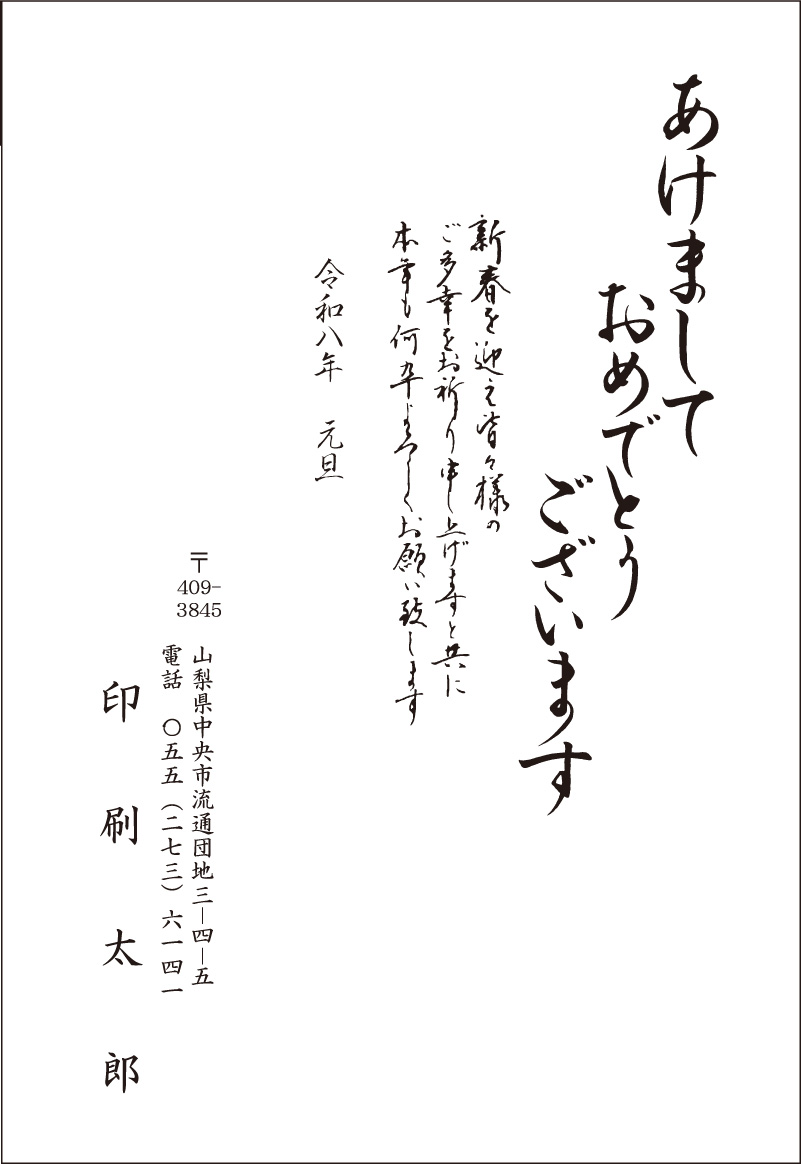 あけまして
おめでとう
ございます
新春を迎え皆々様の
ご多幸をお祈り申し上げますと共に
本年も何卒よろしくお願い致します
令和八年　元旦
〒
409-
3845
山梨県中央市流通団地三―四―五
電話　〇五五（二七三）六一四一
印刷太郎